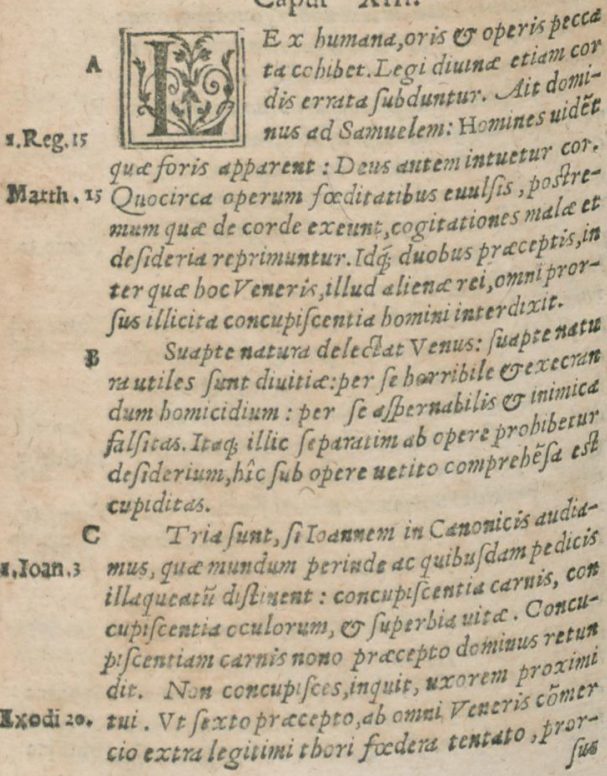 Caput XIII.
A LEx humana, oris & operis pecca
ta cohibet. Legi diuinæ etiam cor
dis errata ſubduntur. Ait domi-
1. Reg. 15 nus ad Samuelem: Homines uidẽt
quæ foris apparent: Deus autem intuetur cor.
Matth. 15 Quocirca operum fœditatibus euulſis, poſtre-
mum quæ de corde exeunt, cogitationes malæ et
deſideria reprimuntur. Idq́; duobus præceptis, in
ter quæ hoc Veneris, illud alienæ rei, omni pror-
ſus illicita concupiſcentia homini interdixit.
B Suapte natura delectat Venus: ſuapte natu
ra utiles ſunt diuitiæ: per ſe horribile & execran
dum homicidium: per ſe aſpernabilis & inimica
falſitas. Itaq; illic ſeparatim ab opere prohibetur
deſiderium, hîc ſub opere uetito comprehẽſa eſt
cupiditas.
C Tria ſunt, ſi Ioannem in Canonicis audia-
1. Ioan. 3 mus, quæ mundum perinde ac quibuſdam pedicis
illaqueatũ diſtinent: concupiſcentia carnis, con
cupiſcentia oculorum, & ſuperbia uitæ. Concu-
piſcentiam carnis nono præcepto dominus retun
dit. Non concupiſces, inquit, uxorem proximi
Exodi 20. tui. Vt ſexto præcepto, ab omni Veneris cõmer
cio extra legitimi thori fœdera tentato, pror-
ſus